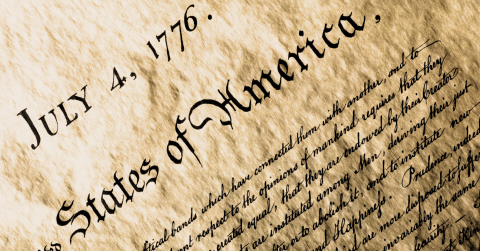 JULY 4, 1776.
States of America,
litical bands which have connected them with another, and to
respect to the opinions of mankind requires that they
created equal, that they are endowed by their Creator
are instituted among Men, deriving their just
or to abolish it, and to institute new
and Happiness. Prudence indeed
are more disposed to
invariably the same